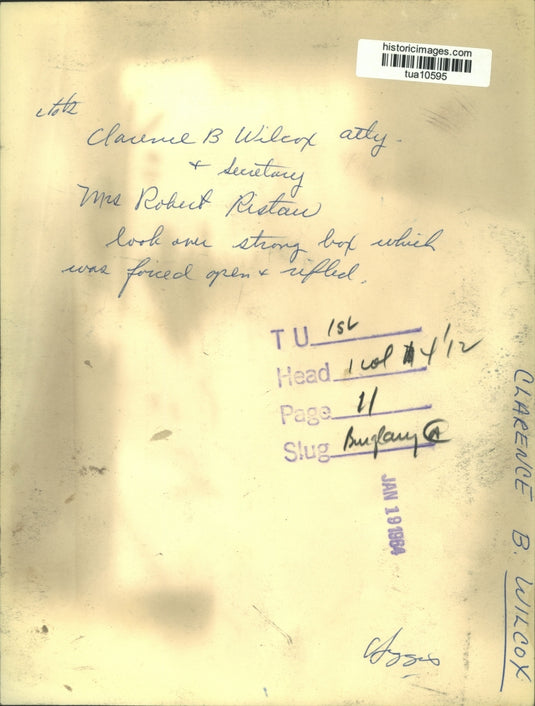 historicimages.com
tua10595
Clarence B Wilcox atty.
+ secretary
Mrs Robert Ristau
look over strong box which
was forced open + rifled.
TU 1st
Head 1 col 4 1/2
Page 11
Slug Burglary A
JAN 19 1964
CLARENCE B. WILCOX